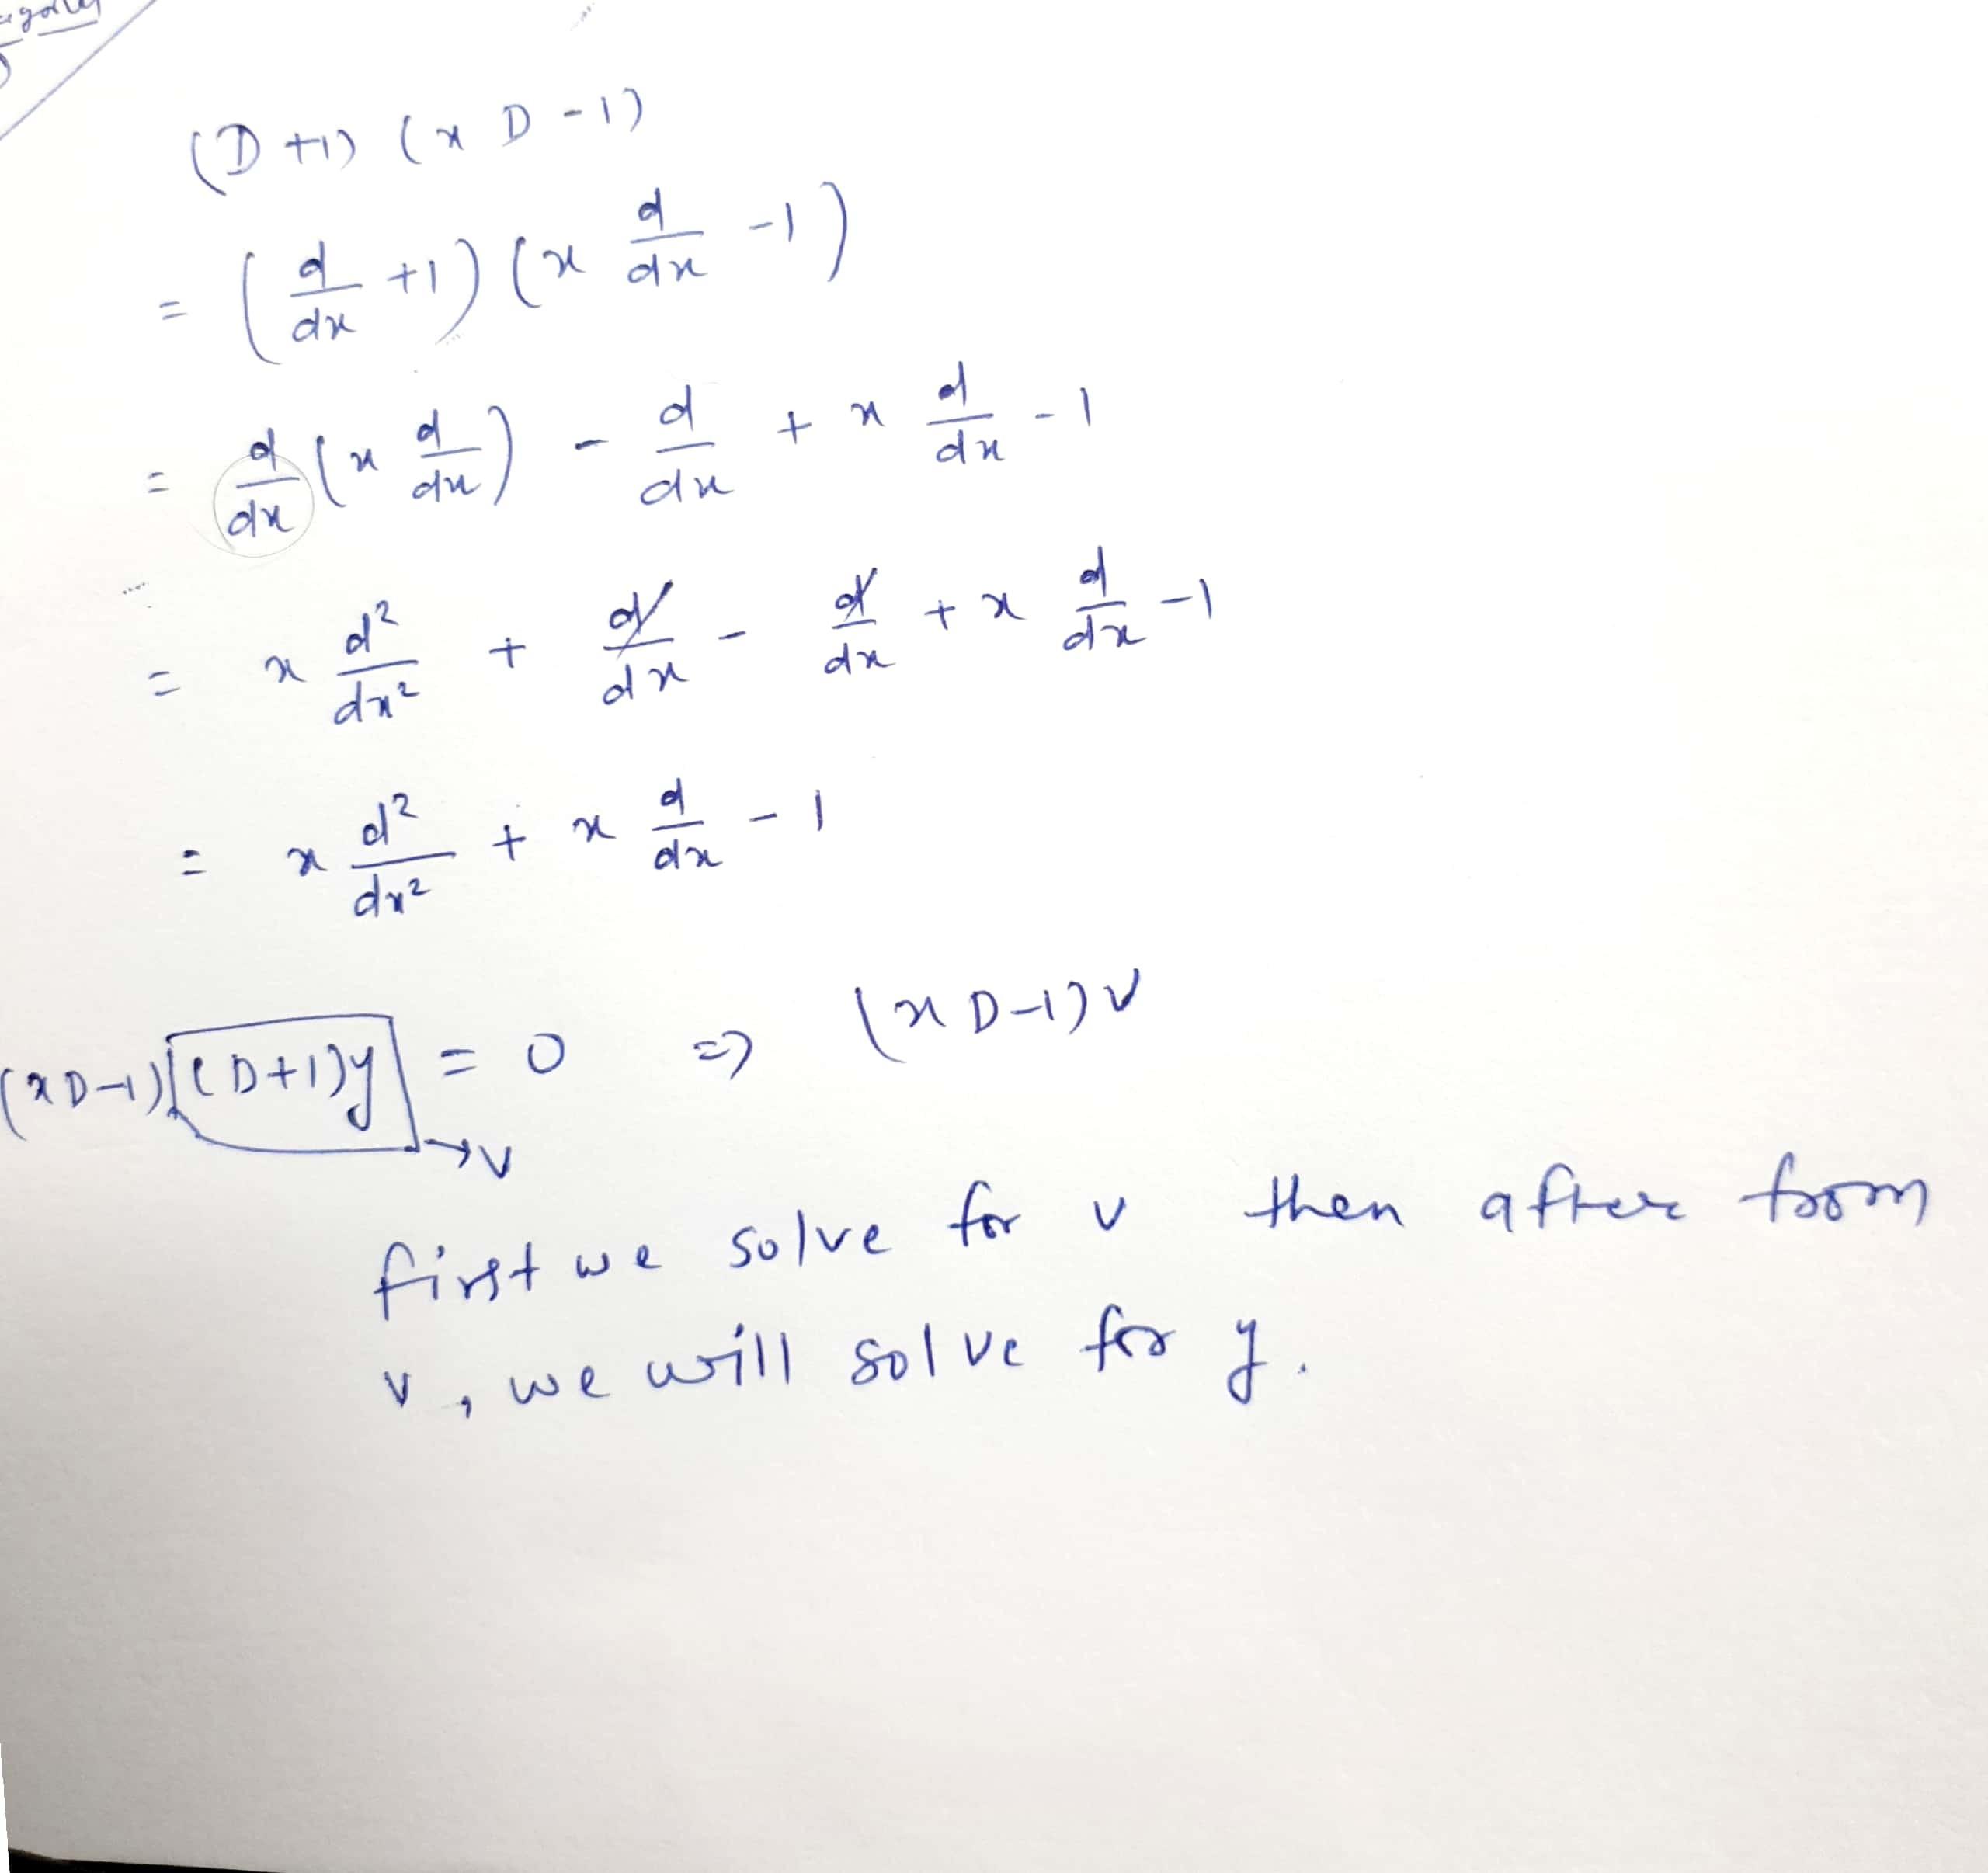 (D+1) (x D -1)
= (d/dx +1) (x d/dx -1)
= d/dx (x d/dx) - d/dx + x d/dx -1
= x d²/dx² + d/dx - d/dx + x d/dx -1
= x d²/dx² + x d/dx - 1
(xD-1)(D+1)y = 0 => (xD-1)v
→v
first we solve for v then after from
v, we will solve for y.